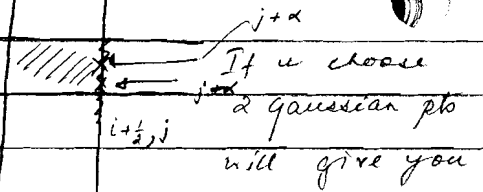 j+α
If u choose
j-α
2 gaussian pts
i+½, j
will give you